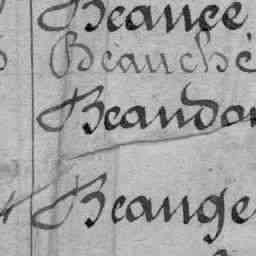 Beaucé
Beauché
Beaudo
Beauge